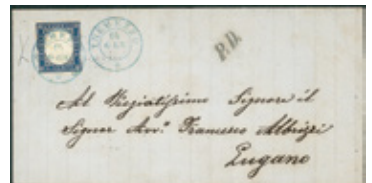 P.D.
Al Pregiatissimo Signore il
Signor Avv.º Francesco Albrizzi
Lugano